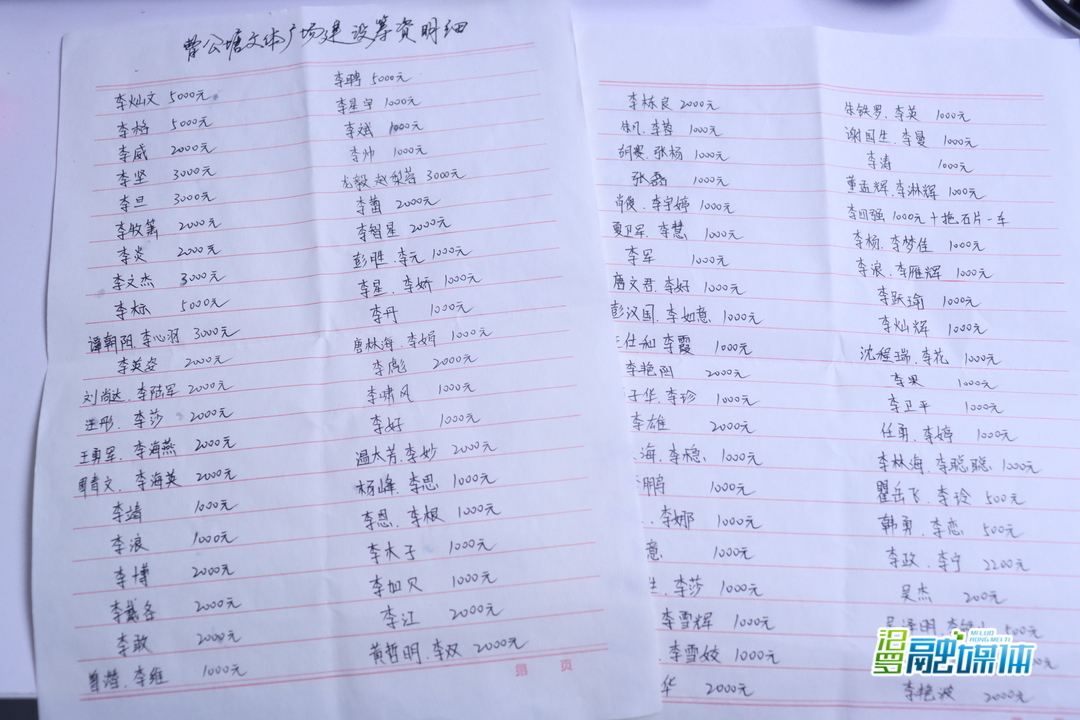 曾公塘文体广场建设筹资明细
李灿文 5000元
李格 5000元
李威 2000元
李坚 3000元
李旦 3000元
李牧篱 2000元
李炎 2000元
李文杰 3000元
李标 5000元
谭朝阳.李心羽 3000元
李英姿 2000元
刘尚达.李陆军 2000元
汪彤.李莎 2000元
王勇军.李海燕 2000元
李海英 2000元
李靖 1000元
李浪 1000元
李博 2000元
2000元
李敢 2000元
曾潜.李维 1000元
李聘 5000元
李星宇 1000元
李斌 1000元
李帅 1000元
龙毅 赵梨蓉 3000元
李蕾 2000元
李智星 2000元
彭胜.李元 1000元
李星.李娇 1000元
李丹 1000元
唐林海.李娟 1000元
李彪 2000元
李啸风 1000元
李好 1000元
温大芳.李妙 2000元
杨峰.李思 1000元
李恩.李根 1000元
李木子 1000元
李加贝 1000元
李江 2000元
黄哲明.李双 2000元
第 页
李栋良 2000元
朱凡.李蓉 1000元
胡赛.张杨 1000元
张磊 1000元
肖俊.李宇婷 1000元
夏卫军.李慧 1000元
李军 1000元
唐文君.李好 1000元
彭汉国.李如意 1000元
王仕和 李霞 1000元
李艳阳 2000元
子华.李珍 1000元
李雄 2000元
海.李稳 1000元
鹏 1000元
李娜 1000元
意 1000元
生.李莎 1000元
李雪辉 1000元
李雪姣 1000元
华 2000元
朱铁罗.李英 1000元
谢国生.李曼 1000元
李涛 1000元
董孟辉.李淋辉 1000元
李国强 1000元+拖石片一车
李杨.李梦佳 1000元
李浪.李雁辉 1000元
李跃瑜 1000元
李灿辉 1000元
沈程瑞.李花 1000元
李果 1000元
李卫平 1000元
任勇.李婷 1000元
李林海.李聪聪 1000元
瞿岳飞.李玲 500元
韩勇.李恋 500元
李政.李宁 2200元
吴杰 200元
李艳波 2000元
汨罗融媒体
MI LUO RONG MEI TI